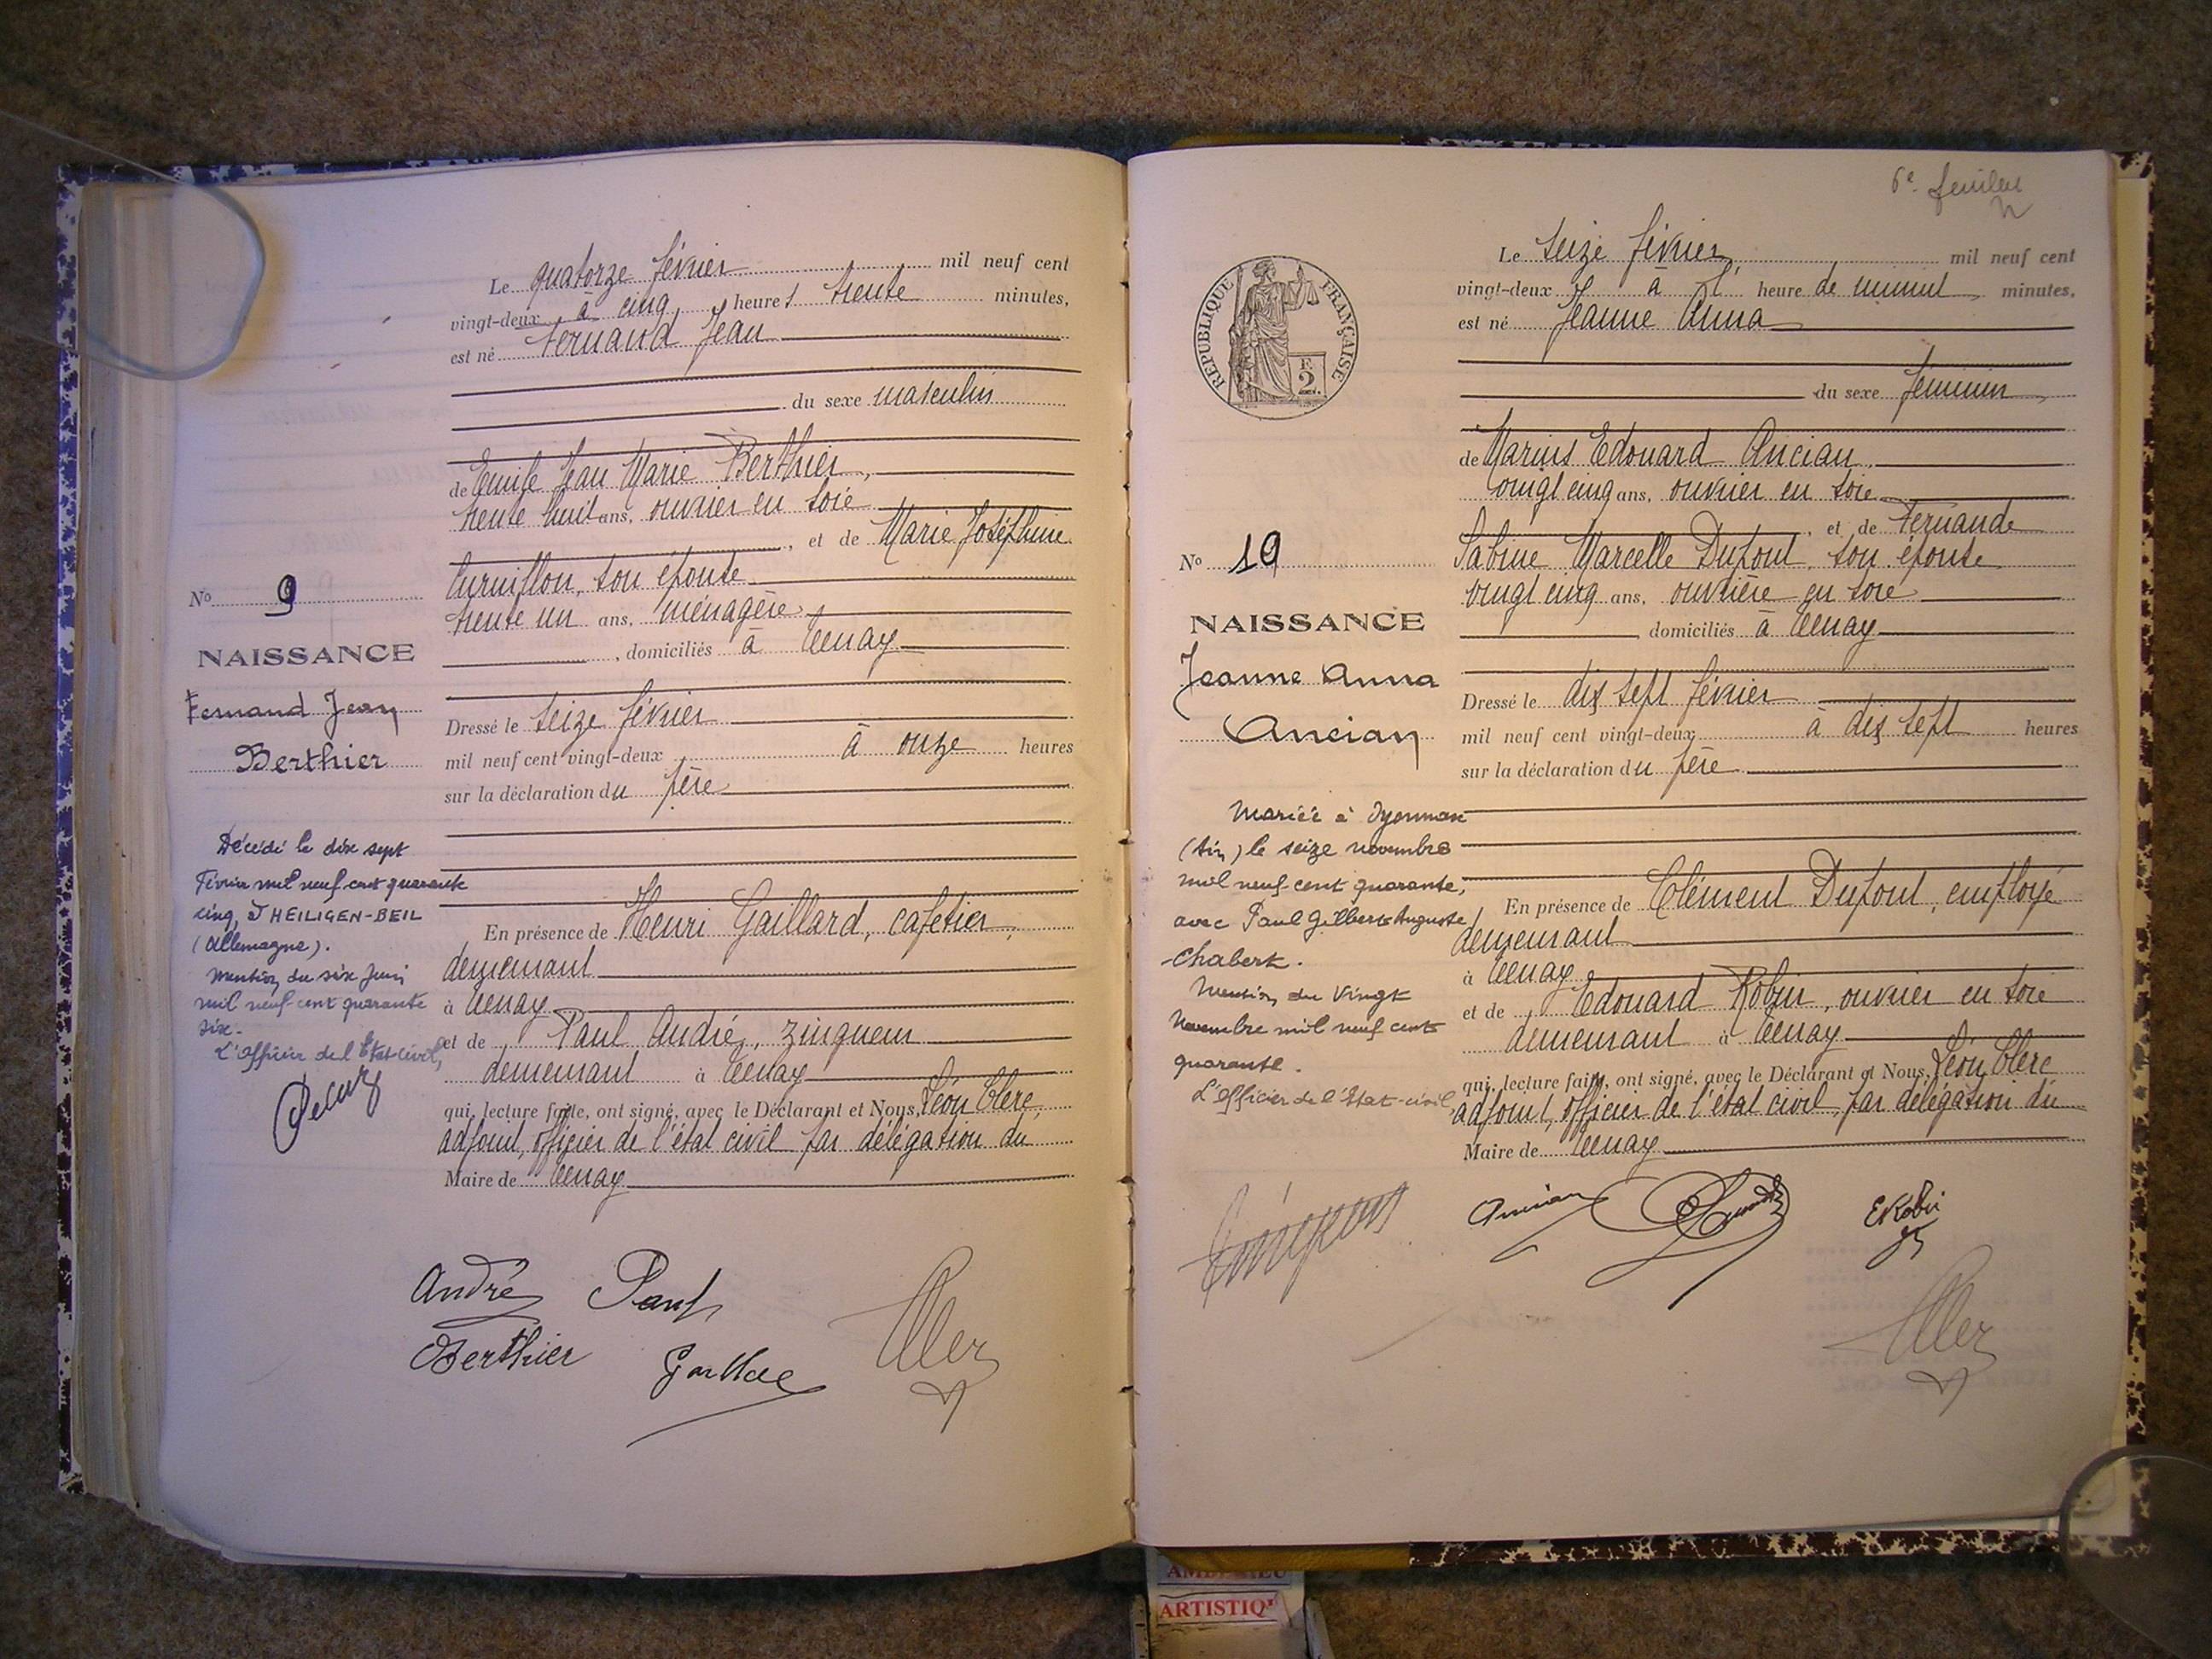 Le quatorze février mil neuf cent
vingt-deux à cinq heures trente minutes,
est né Fernand Jean
du sexe masculin
de Emile Jean Marie Berthier,
trente huit ans, ouvrier en soie
, et de Marie Joséphine
son épouse
trente un ans, ménagère
, domiciliés à Tenay
Dressé le seize février
mil neuf cent vingt-deux à onze heures
sur la déclaration du père
En présence de Henri Gaillard, cafetier,
demeurant
à Tenay
et de Paul André, zingueur
demeurant à Tenay
qui, lecture faite, ont signé, avec le Déclarant et Nous, Léon Clerc,
adjoint, officier de l'état civil par délégation du
Maire de Tenay
No 9
NAISSANCE
Fernand Jean
Berthier
Décédé le dix sept
Février mil neuf cent quarante
cinq, à HEILIGEN-BEIL
(Allemagne).
Mention du six Juin
mil neuf cent quarante
six.
L'officier de l'Etat civil,
André Paul
Berthier
6e feuillet
REPUBLIQUE FRANÇAISE
F.
2.
Le seize février mil neuf cent
vingt-deux à l' heure de minuit minutes,
est né Jeanne Anna
du sexe féminin
de Marius Edouard Ancian
vingt cinq ans, ouvrier en soie
, et de Fernande
Sabine Marcelle Dupont, son épouse
vingt cinq ans, ouvrière en soie
, domiciliés à Tenay
Dressé le dix sept février
mil neuf cent vingt-deux à dix sept heures
sur la déclaration du père
En présence de Clément Dupont, employé
demeurant
à Tenay
et de Edouard Robin, ouvrier en soie
demeurant à Tenay
qui, lecture faite, ont signé, avec le Déclarant et Nous, Léon Clerc
adjoint, officier de l'état civil, par délégation du
Maire de Tenay
No 10
NAISSANCE
Jeanne Anna
Ancian
Mariée à Oyonnax
(Ain) le seize novembre
mil neuf cent quarante,
avec Paul Gilbert Auguste
Chabert.
Mention du Vingt
Novembre mil neuf cent
quarante.
L'officier de l'Etat-civil,
Ancian
E Robin
ARTISTIQ